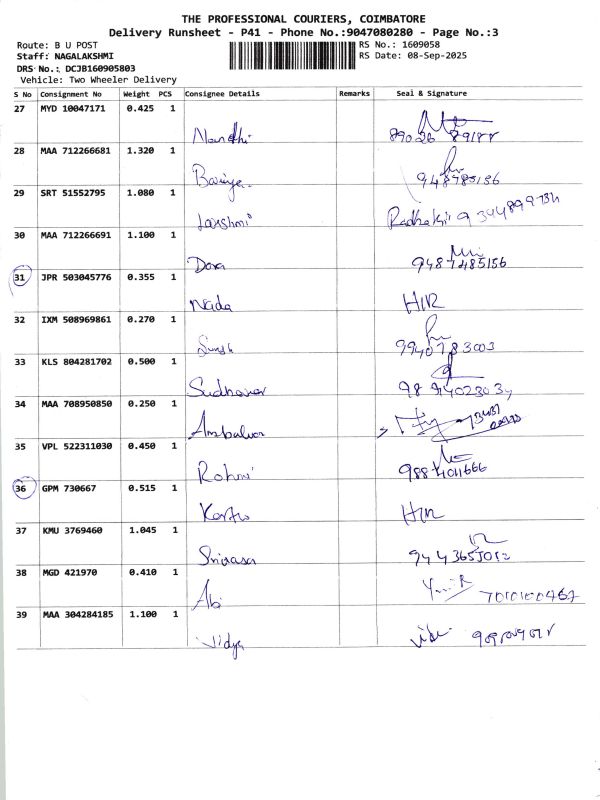 THE PROFESSIONAL COURIERS, COIMBATORE
Delivery Runsheet - P41 - Phone No.:9047080280 - Page No.:3
Route: B U POST RS No.: 1609058
Staff: NAGALAKSHMI RS Date: 08-Sep-2025
DRS No.: DCJB160905803
Vehicle: Two Wheeler Delivery
S No Consignment No Weight PCS Consignee Details Remarks Seal & Signature
27 MYD 10047171 0.425 1
Nandhi
28 MAA 712266681 1.320 1
948785156
29 SRT 51552795 1.080 1
Lakshmi
30 MAA 712266691 1.100 1
Dora 9487485156
31 JPR 503045776 0.355 1
Nada H/R
32 IXM 508969861 0.270 1
9940783003
33 KLS 804281702 0.500 1
34 MAA 708950850 0.250 1
35 VPL 522311030 0.450 1
Rohini
36 GPM 730667 0.515 1
H/R
37 KMU 3769460 1.045 1
38 MGD 421970 0.410 1
Abi 7010100467
39 MAA 304284185 1.100 1
Vidya